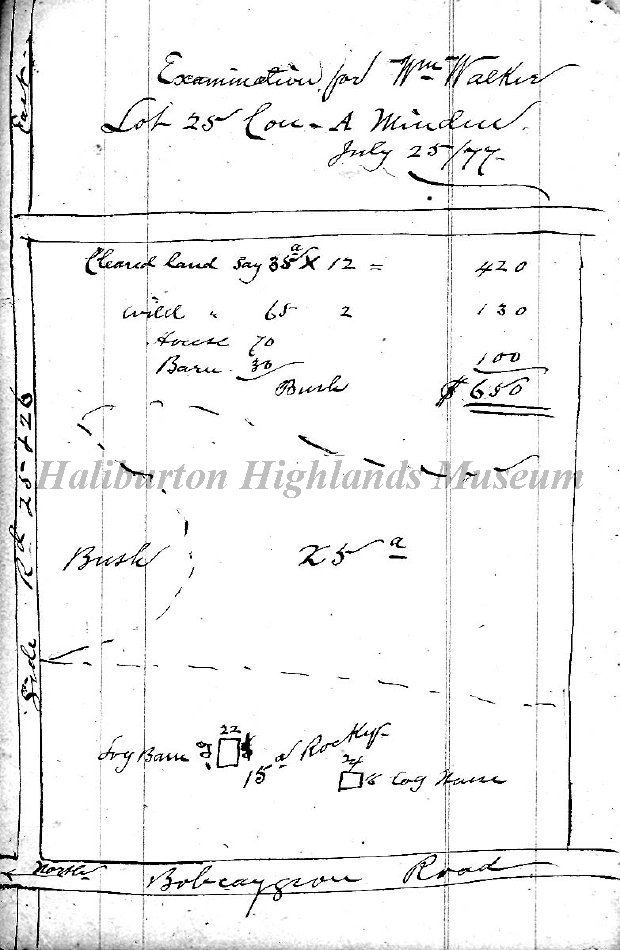 East
Examination for Wm Walker
Lot 25 Con - A Minden.
July 25/77-
Cleared land say 35a X 12 = 420
Wild " 65 2 130
House 70
Barn 30 100
Bush $650
Haliburton Highlands Museum
Side Rd 25 & 26
Bush 25 a
22
Log Barn
15 a Rocky
24
18 Log House
North
Bobcaygeon Road